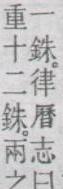 一銖。律曆志曰
重十二銖。兩之